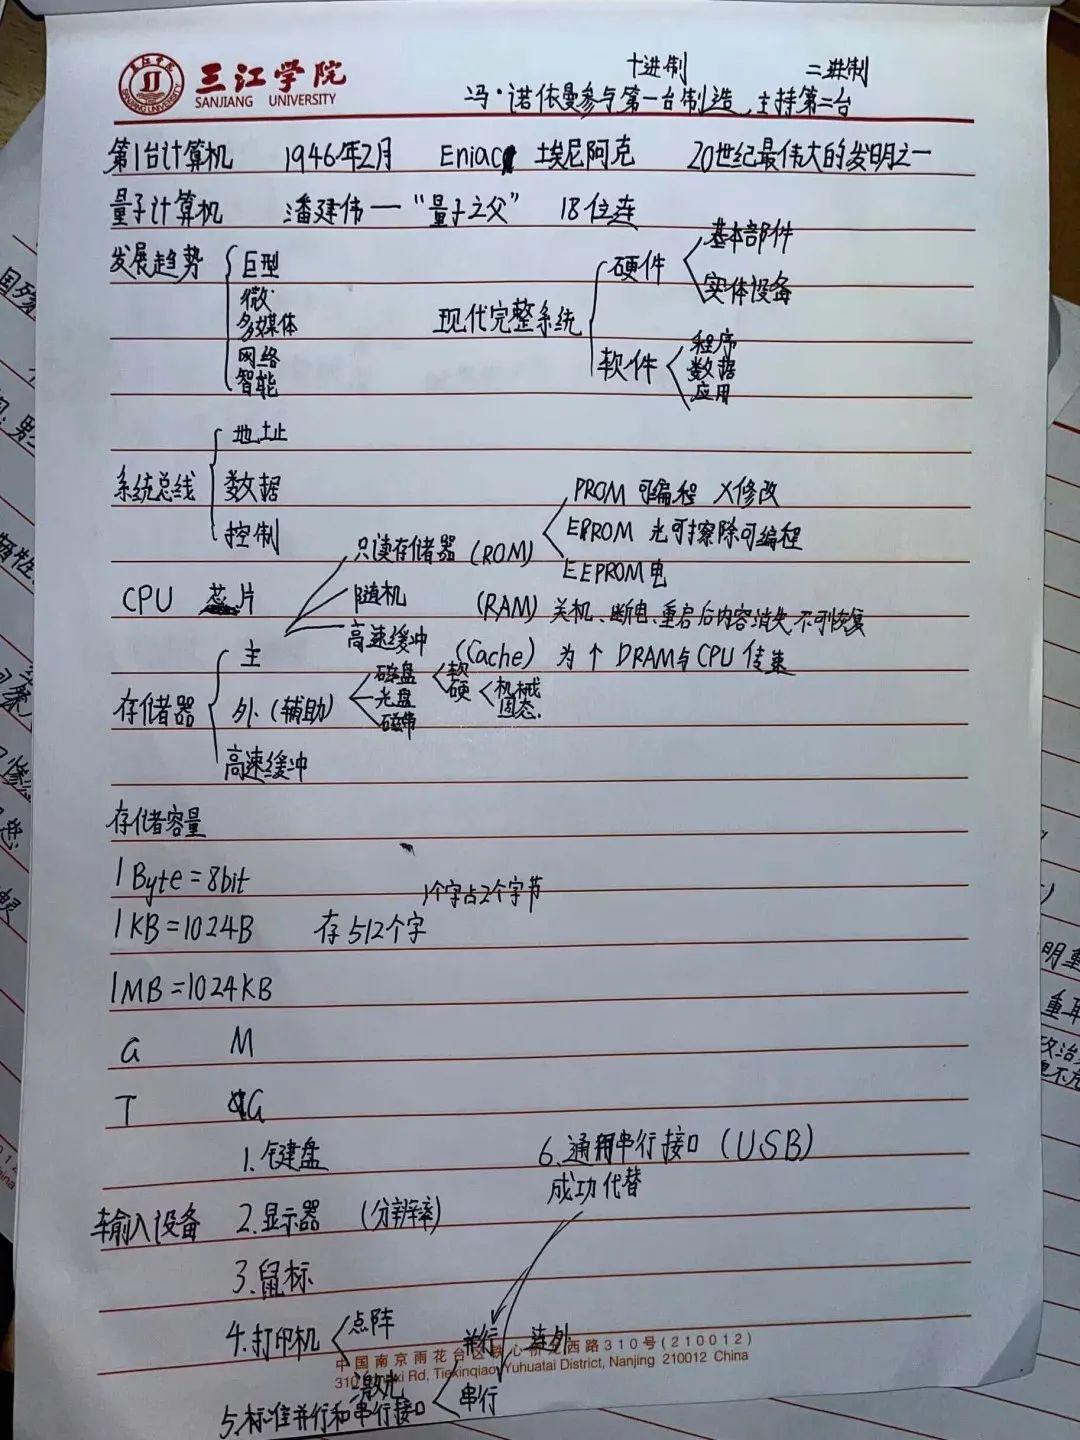 三江学院
SANJIANG UNIVERSITY
十进制 二进制
冯·诺依曼参与第一台制造,主持第二台
第1台计算机 1946年2月 Eniac 埃尼阿克 20世纪最伟大的发明之一
量子计算机 潘建伟—“量子之父” 18位连
发展趋势 巨型
微
多媒体
网络
智能
现代完整系统 硬件 基本部件
实体设备
软件 程序
数据
应用
系统总线 地址
数据
控制
CPU 芯片
只读存储器 (ROM) PROM 可编程 X修改
EPROM 光可擦除可编程
EEPROM 电
随机 (RAM) 关机、断电、重启后内容消失,不可恢复
高速缓冲 (Cache) 为个 DRAM与CPU 传速
存储器 主
外(辅助) 磁盘 软
硬 机械
固态.
光盘
磁带
高速缓冲
存储者容量
1Byte=8bit
1个字占2个字节
1KB=1024B 存512个字
1MB=1024KB
G M
T G
输入设备 1.键盘
2.显示器 (分辨率)
3.鼠标
4.打印机 点阵
激光
5.标准并行和串行接口 并行 连外
串行
6.通用串行接口(USB)
成功代替
中国南京雨花台区铁心桥龙西路310号(210012)
Rd, Tiexinqiao, Yuhuatai District, Nanjing 210012 China